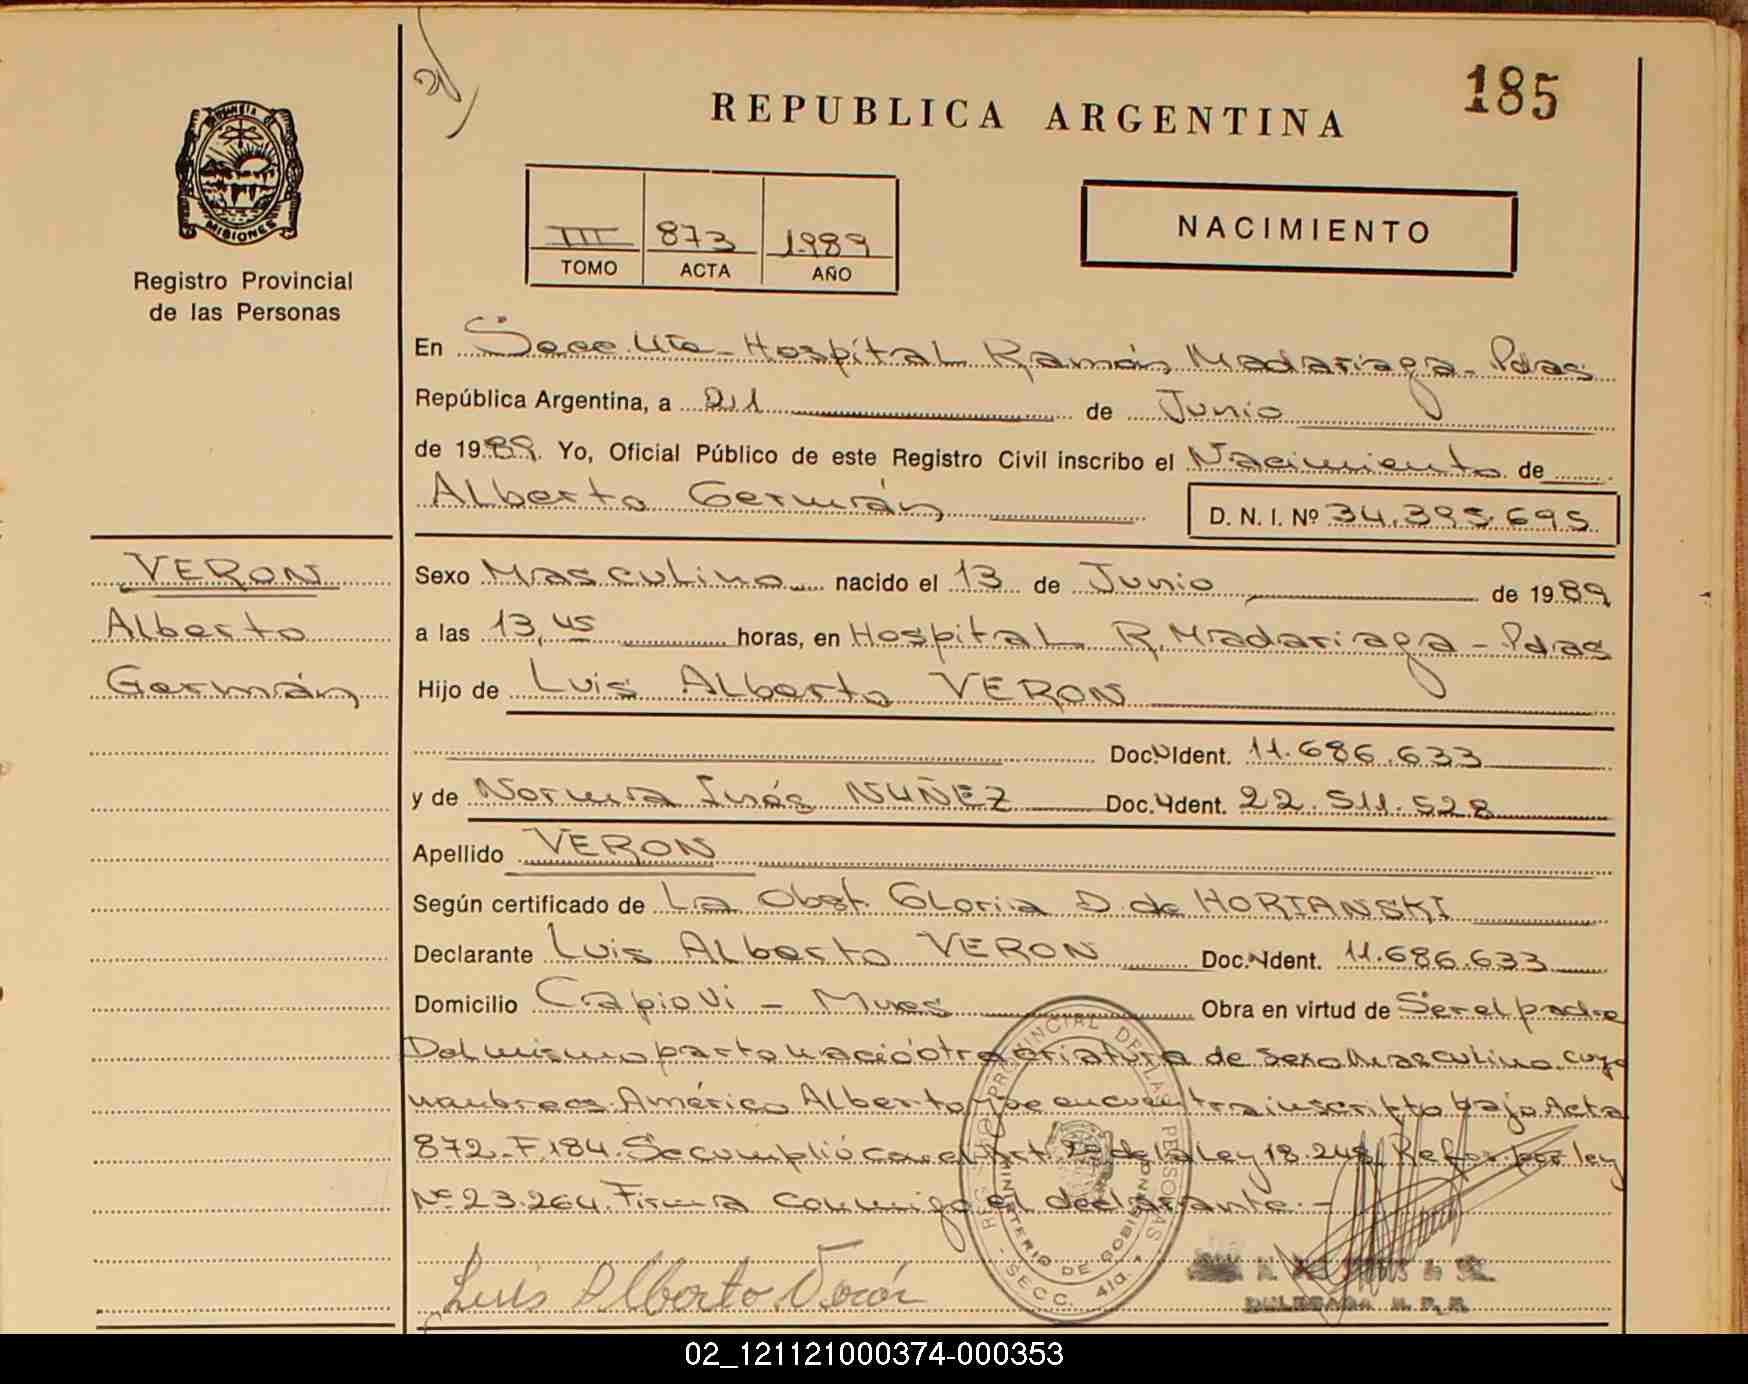 185
REPUBLICA ARGENTINA
MISIONES
Registro Provincial
de las Personas
III 873 1989
TOMO ACTA AÑO
NACIMIENTO
En Secc. 4ta - Hospital Ramón Madariaga - Pdas
República Argentina, a 21 de Junio
de 1989. Yo, Oficial Público de este Registro Civil inscribo el Nacimiento de
Alberto Germán
D. N. I. Nº 34.395.695
VERON
Alberto
Germán
Sexo Masculino nacido el 13 de Junio de 1989
a las 13,45 horas, en Hospital R. Madariaga - Pdas
Hijo de Luis Alberto VERON
Doc. Ident. 11.686.633
y de Norma Inés NUÑEZ Doc. Ident. 22.511.528
Apellido VERON
Según certificado de La Obst. Gloria D. de HORIANSKI
Declarante Luis Alberto VERON Doc. Ident. 11.686.633
Domicilio Capioví - Mnes Obra en virtud de Ser el padre
Del mismo parto nació otra criatura de sexo Masculino cuyo
nombre es Américo Alberto y se encuentra inscripto bajo Acta
872-F.184. Se cumplió con el Art. 2º de la Ley 18.248 Refor por ley
Nº 23.264. Firma conmigo el declarante.-
REG. PROVINCIAL DE LAS PERSONAS
MINISTERIO DE GOBIERNO
SECC. 4ta.
Luis Alberto Verón
DELEGADA R. P. P.
02_121121000374-000353